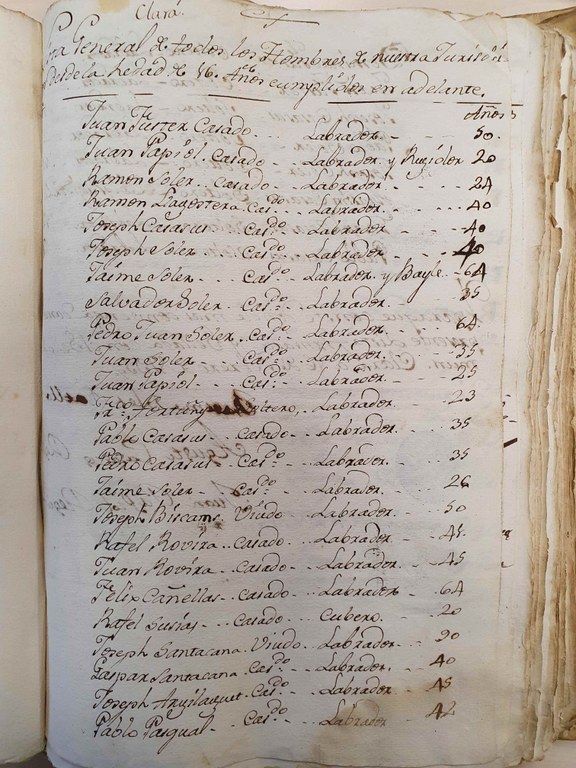 Clará.
General de todos los Hombres de nuestra
Desde la hedad de 16. Años cumplidos en adelante,
Años
Juan Fuster Casado... Labrador. - - - 50.
Juan Papiol. Casado - - Labrador. y Regidor 20
Ramon Soler. - casado - - Labrador. - - - 24
Ramon Lagostera Cas.do - - Labrador. - - - 40
Joseph Casasus Cas.do - - Labrador. - - - 40
Joseph Soler - Cas.do - - Labrador. - - - 40
Jaime Soler. - - Cas.do - Labrador. y Bayle. - 64
Salvador Soler. Cas.do - - Labrador. - - - 35
Pedro Juan Soler. Cas.do - - Labrador. - - - 64.
Juan Soler - - Cas.do - - Labrador. - - - 35
Juan Papiol. - - Cas.do - - Labrador. - - - 25
Labrador. - - - 23
Pablo Casasus - casado - - Labrador. - - - 35
Pedro Casasus - Cas.do - - Labrador. - - - 35
Jaime Soler. - Cas.do - - Labrador. - - - 26
Joseph Viudo - Labrador. - - - 50
Rafel Rovira. - casado. - - Labrador. - - - 45.
Juan Rovira. - casado - - Labrador. - - - 45
Felix Cañellas - casado - - Labrador. - - 64
Rafel - - casado - - Cubero. - - - 20
Joseph Santacana. Viudo. - Labrador. - - 90
Gaspar Santacana Cas.do - - Labrador. - - 40
Joseph Cas.do - - Labrador - - 45
Pablo Pasqual - - Cas.do - - Labrador - - 42